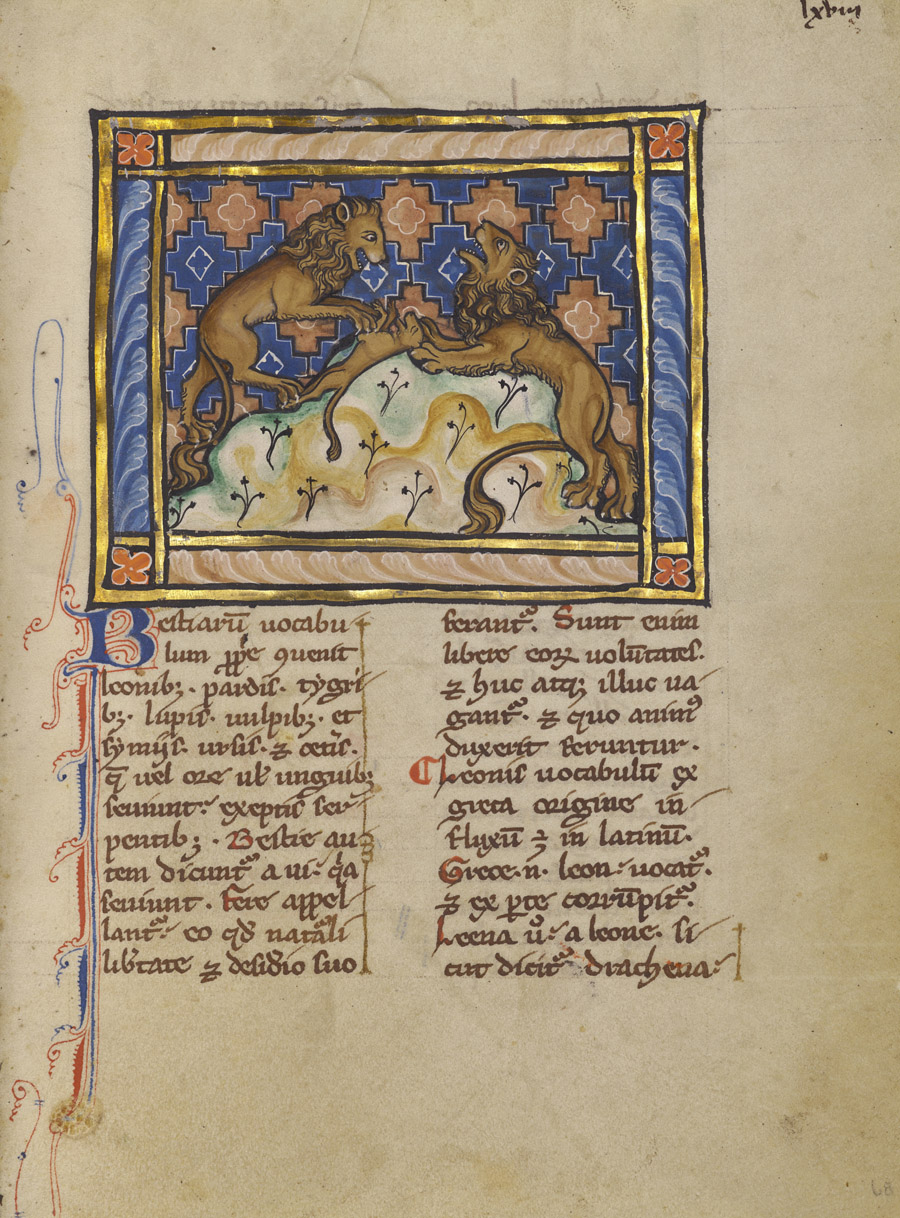 lxviii
Bestiarū uocabu-
lum ꝓp̄e ꝯuenit
leonibꝫ · pardis · tygri-
bꝫ · lupis · uulpibꝫ · et
symiis · ursis · ⁊ cetis ·
q̄ uel ore uł unguibꝫ
seuiunt · exeptis ser-
pentibꝫ · Bestie au-
tem dicunt᷑ a ui · q̇a
seuiunt · Fere appel-
lant᷑ · eo qđ nat᷑ali
lib̾tate ⁊ desid̾io suo
ferant᷑ · Sunt enim
libere eoꝝ uolūtates ·
⁊ huc atqꝫ illuc ua-
gant᷑ · ⁊ quo animꝰ
duxerit feruntur ·
Leonis uocabulū ex
greca origine in-
fluxū ⁊ in latinū ·
Grece · n · leon · uocat᷑ ·
⁊ ex ꝑte corrūpit᷑ ·
Leena u̾o · a leone · si-
cut dicit᷑ drachena ·
68